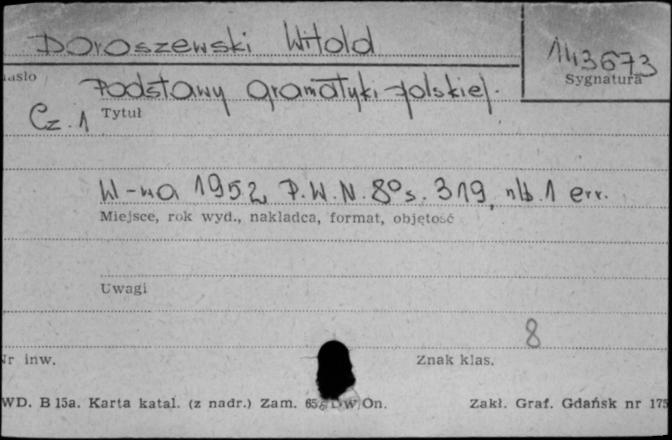 Doroszewski Witold
143673
asło
Sygnatura
Podstawy gramatyki polskiej.
Cz. 1
Tytuł
W-wa 1952, P.W.N. 8° s. 319, nlb. 1 err.
Miejsce, rok wyd., nakładca, format, objętość
Uwagi
8
Nr inw.
Znak klas.
WD. B 15a. Karta katal. (z nadr.) Zam. Dw. On.
Zakł. Graf. Gdańsk nr 175